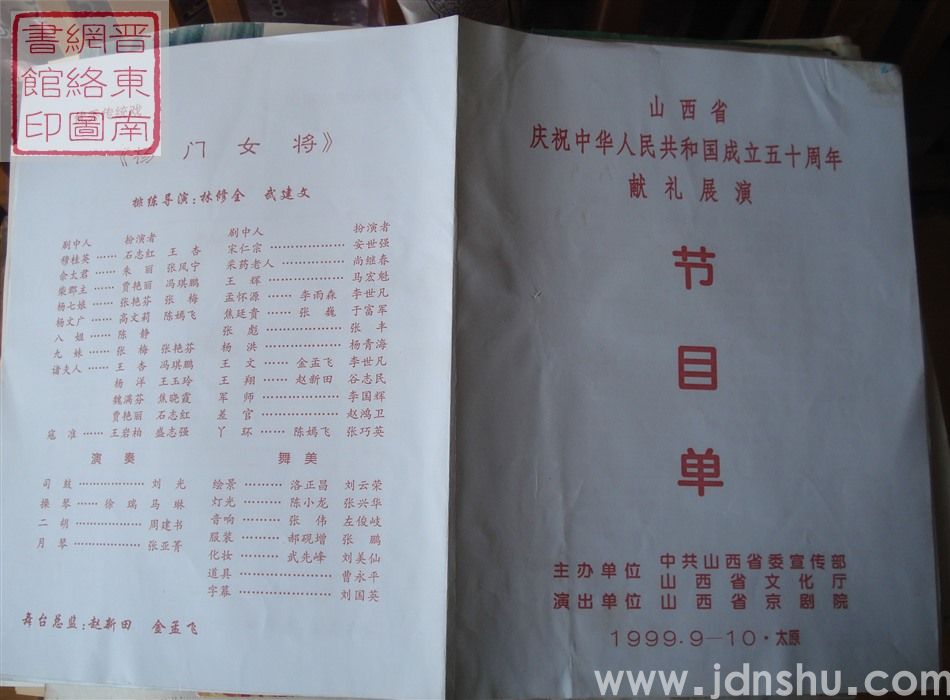 晋东南
網絡圖
書館印
传统戏
《杨门女将》
排练导演:林修全 武建文
剧中人 扮演者
穆桂英……石志红 王杏
佘太君……朱丽 张凤宁
柴郡主……贾艳丽 冯琪鹏
杨七娘……张艳芬 张梅
杨文广……高文莉 陈嫣飞
八姐……陈静
九妹……张梅 张艳芬
诸夫人……王杏 冯琪鹏
杨洋 王玉玲
魏满芬 焦晓霞
贾艳丽 石志红
寇准……王岩柏 盛志强
剧中人 扮演者
宋仁宗……………安世强
采药老人…………尚继春
王辉………………马宏魁
孟怀源……李雨森 李世凡
焦廷贵……张巍 于富军
张彪………………张丰
杨洪………………杨青海
王文……金孟飞 李世凡
王翔……赵新田 谷志民
军师………………李国辉
差官………………赵鸿卫
丫环……陈嫣飞 张巧英
演奏
司鼓………………刘光
操琴……徐瑞 马琳
二胡………………周建书
月琴………………张亚菁
舞美
绘景………洛正昌 刘云荣
灯光………陈小龙 张兴华
音响………张伟 左俊岐
服装………郝砚增 张鹏
化妆………武先峰 刘美仙
道具………………曹永平
字幕………………刘国英
舞台总监:赵新田 金孟飞
山西省
庆祝中华人民共和国成立五十周年
献礼展演
节
目
单
主办单位 中共山西省委宣传部
山西省文化厅
演出单位 山西省京剧院
1999.9-10·太原
www.jdnshu.com